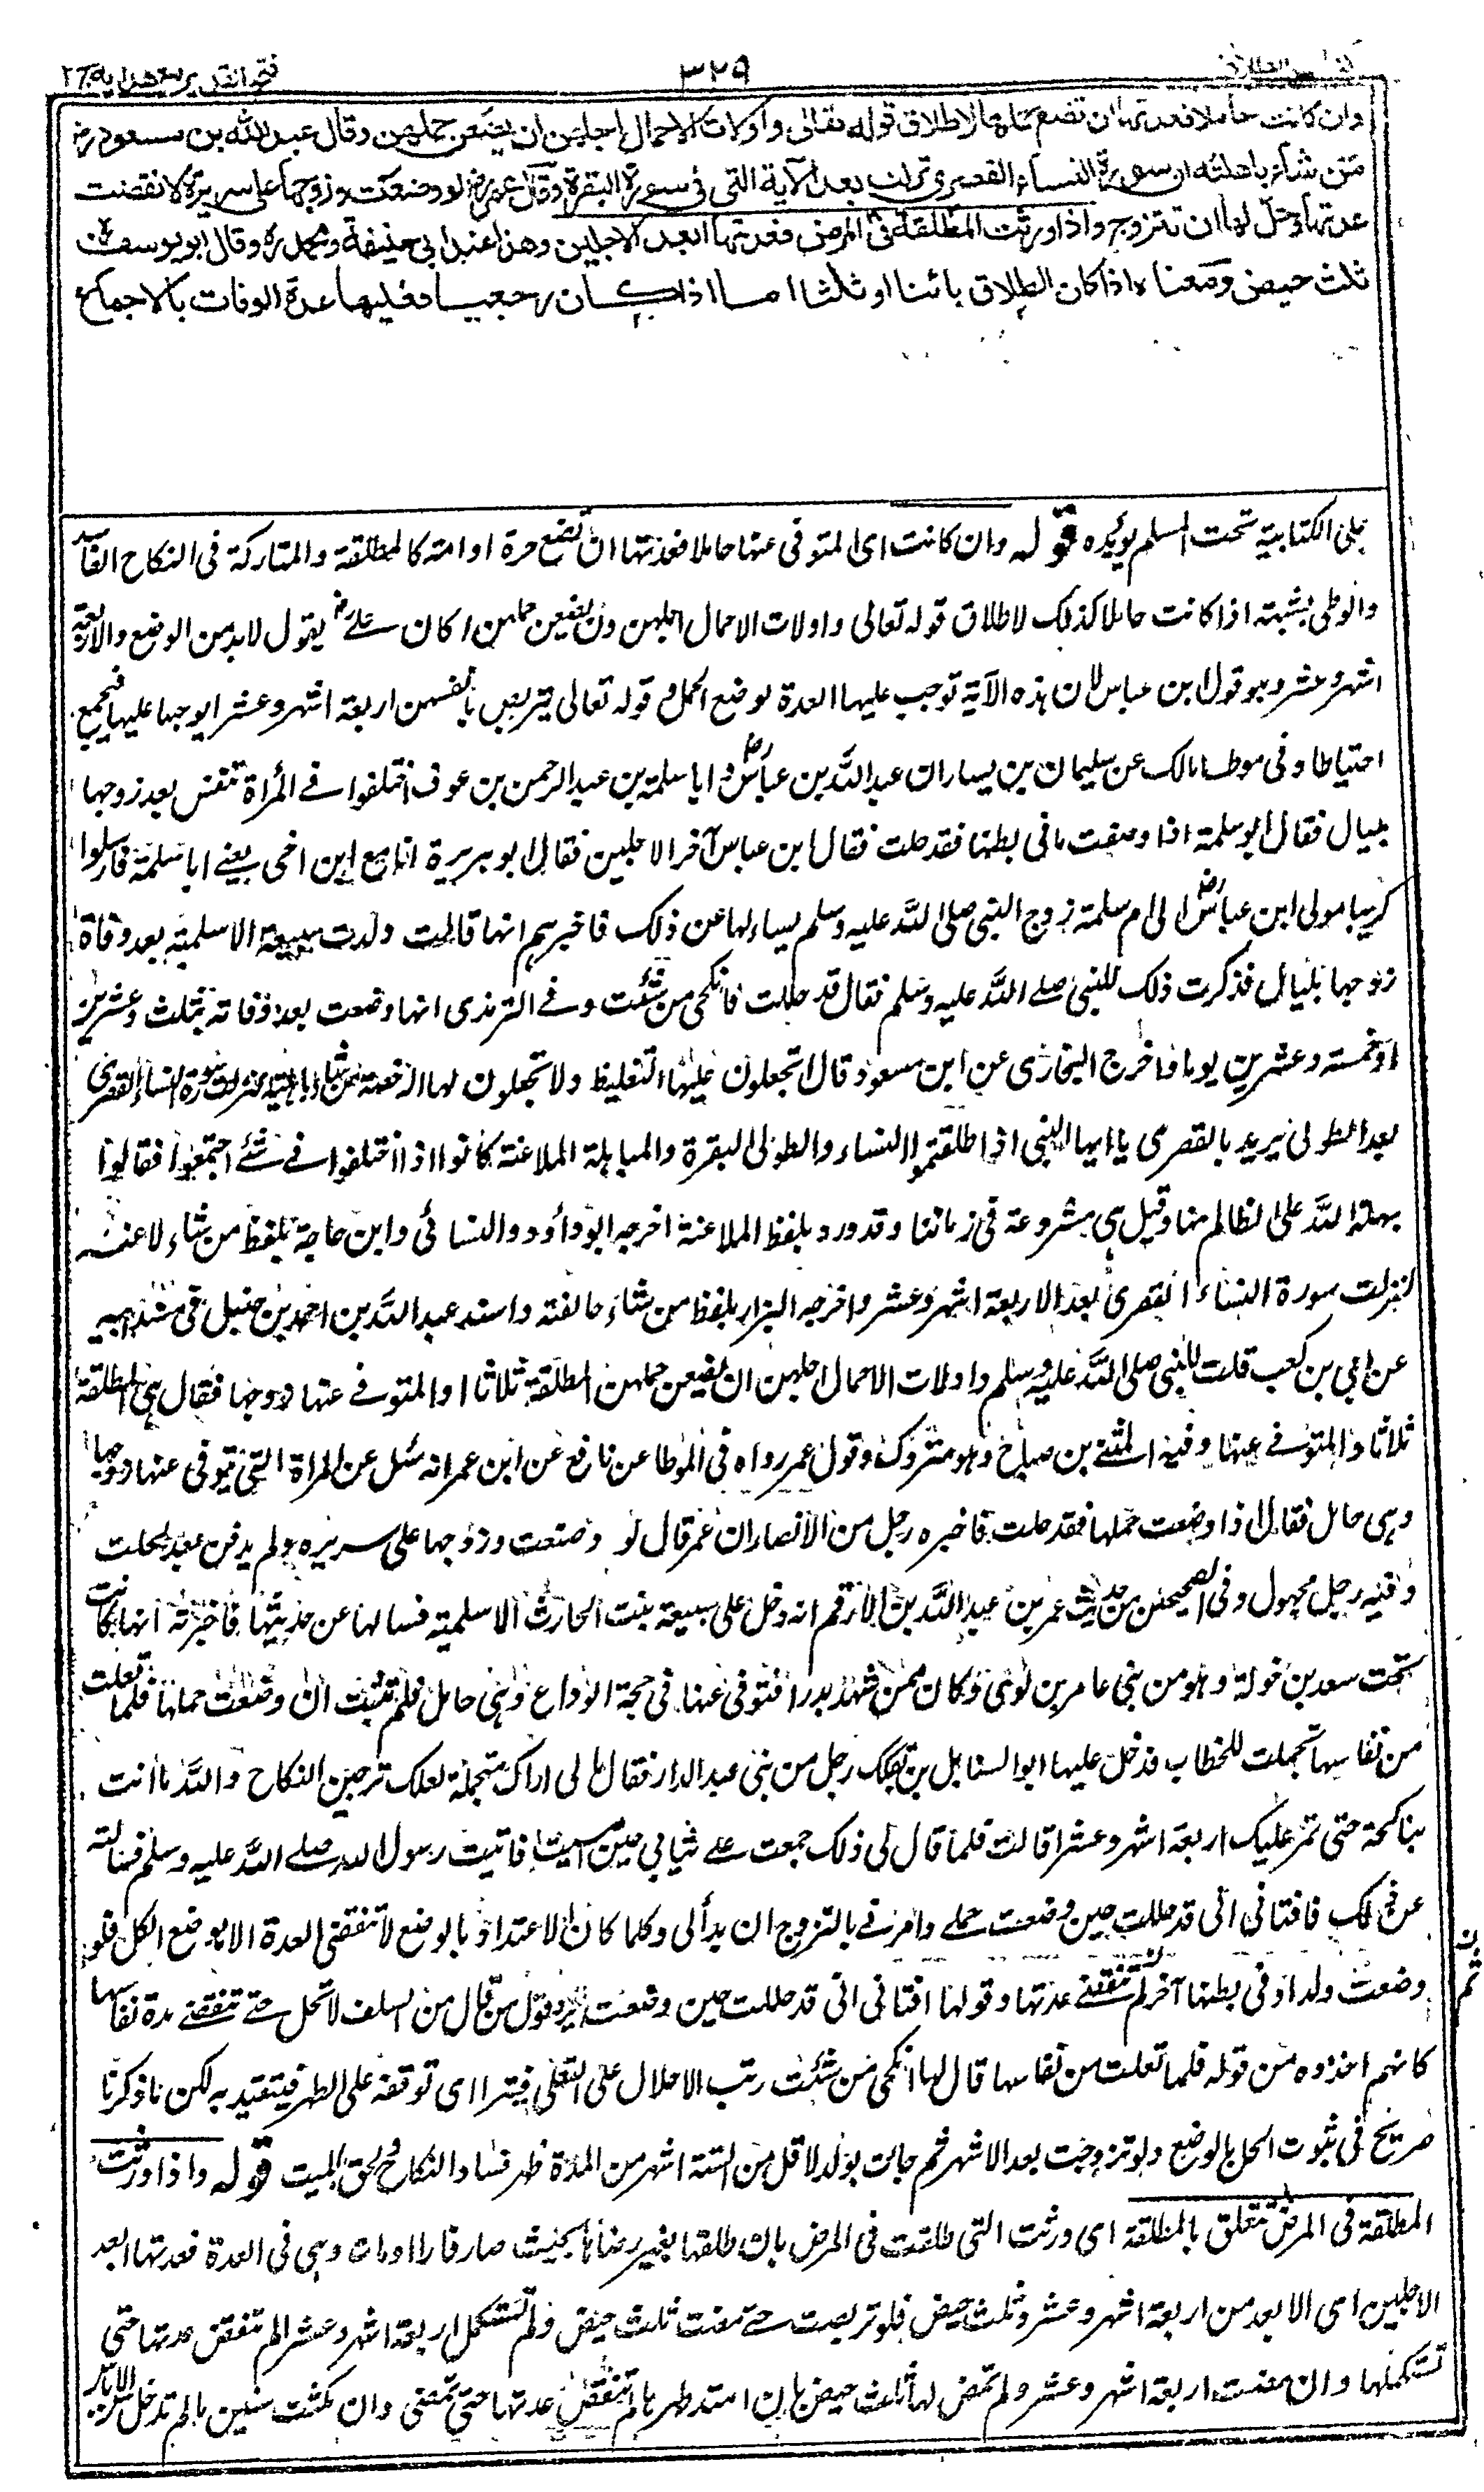 فتح القدير مع هداية ج ٢
٣٢٩
كتاب الطلاق
وان كانت حاملا فعدتها ان تضع حملها لاطلاق قوله تعالى واولات الاحمال اجلهن ان يضعن حملهن وقال عبد الله بن مسعود رض
من شاء باهلته ان سورة النساء القصرى نزلت بعد الآية التى فى سورة البقرة وقال عمر رض لو وضعت وزوجها على سريره لانقضت
عدتها وحل لها ان تتزوج واذا ورثت المطلقة فى المرض فعدتها ابعد الاجلين وهذا عند ابى حنيفة ومحمد ره وقال ابو يوسف ره
ثلث حيض ومعناه اذا كان الطلاق بائنا او ثلثا اما اذا كان رجعيا فعليها عدة الوفات بالاجماع
على الكتابية تحت المسلم يؤيده قوله وان كانت اى المتوفى عنها حاملا فعدتها ان تضع حرة او امة كالمطلقة والمتاركة فى النكاح الفاسد
والوطى بشبهة اذا كانت حاملا كذلك لاطلاق قوله تعالى واولات الاحمال اجلهن ان يضعن حملهن وكان على رض يقول لا بد من الوضع والاربعة
اشهر وعشر وهو قول ابن عباس لان هذه الآية توجب عليها العدة بوضع الحمل وقوله تعالى يتربصن بانفسهن اربعة اشهر وعشرا يوجبها عليها فتجمع
احتياطا وفى موطا مالك عن سليمان بن يسار ان عبد الله بن عباس رض وابا سلمة بن عبد الرحمن بن عوف اختلفوا فى المرأة تنفس بعد زوجها
بليال فقال ابو سلمة اذا وضعت ما فى بطنها فقد حلت فقال ابن عباس آخر الاجلين فقال ابو هريرة انا مع ابن اخى يعنى ابا سلمة فارسلوا
كريبا مولى ابن عباس رض الى ام سلمة زوج النبى صلى الله عليه وسلم يسألها عن ذلك فاخبرهم انها قالت ولدت سبيعة الاسلمية بعد وفاة
زوجها بليال فذكرت ذلك للنبى صلى الله عليه وسلم فقال قد حللت فانكحى من شئت وفى الترمذى انها وضعت بعد وفاته بثلث وعشرين
او خمسة وعشرين يوما واخرج البخارى عن ابن مسعود قال اتجعلون عليها التغليظ ولا تجعلون لها الرخصة من شاء باهلته لنزلت سورة النساء القصرى
بعد الطولى يريد بالقصرى يا ايها النبى اذا طلقتم النساء والطولى البقرة والمباهلة الملاعنة كانوا اذا اختلفوا فى شئ اجتمعوا فقالوا
بهلة الله على الظالم منا وقيل هى مشروعة فى زماننا وقد ورد بلفظ الملاعنة اخرجه ابو داؤد والنسائى وابن ماجة بلفظ من شاء لاعنته
لنزلت سورة النساء القصرى بعد الاربعة اشهر وعشر واخرجه البزار بلفظ من شاء حالفته واسند عبد الله بن احمد بن حنبل فى مسند ابيه
عن ابى بن كعب قلت للنبى صلى الله عليه وسلم واولات الاحمال اجلهن ان يضعن حملهن المطلقة ثلاثا او المتوفى عنها زوجها فقال هى المطلقة
ثلاثا والمتوفى عنها وفيه المثنى بن صباح وهو متروك وقول عمر رواه فى الموطا عن نافع عن ابن عمر انه سئل عن المرأة التى يتوفى عنها زوجها
وهى حامل فقال اذا وضعت حملها فقد حلت فاخبره رجل من الانصار ان عمر قال لو وضعت وزوجها على سريره ولم يدفن بعد لحلت
وفيه رجل مجهول وفى الصحيحين من حديث عمر بن عبد الله بن الارقم انه دخل على سبيعة بنت الحارث الاسلمية فسالها عن حديثها فاخبرته انها كانت
تحت سعد بن خولة وهو من بنى عامر بن لؤى وكان ممن شهد بدرا فتوفى عنها فى حجة الوداع وهى حامل فلم تنشب ان وضعت حملها فلما تعلت
من نفاسها تجملت للخطاب فدخل عليها ابو السنابل بن بعكك رجل من بنى عبد الدار فقال مالى اراك متجملة لعلك ترجين النكاح والله ما انت
بناكحة حتى تمر عليك اربعة اشهر وعشرا قالت فلما قال لى ذلك جمعت على ثيابى حين امسيت فاتيت رسول الله صلى الله عليه وسلم فسالته
عن ذلك فافتانى انى قد حللت حين وضعت حملى وامرنى بالتزوج ان بدألى وكلما كان الاعتداد بالوضع لا تنقضى العدة الا بوضع الكل فلو
وضعت ولدا وفى بطنها آخر لم تنقض عدتها وقولها افتانى انى قد حللت حين وضعت يرد قول من قال من السلف لا تحل حتى تنقضى مدة نفاسها
كانهم اخذوه من قوله فلما تعلت من نفاسها قال لها انكحى من شئت رتب الاحلال على التعلى فيتراأى توقفه على الطهر فيتقيد به لكن ما ذكرنا
صريح فى ثبوت الحل بالوضع ولو تزوجت بعد الاشهر ثم جاءت بولد لاقل من ستة اشهر من المدة ظهر فساد النكاح ولحق بالميت قوله واذا ورثت
المطلقة فى المرض متعلق بالمطلقة اى ورثت التى طلقت فى المرض بان طلقها بغير رضاها بحيث صار فارا ومات وهى فى العدة فعدتها ابعد
الاجلين اى الابعد من اربعة اشهر وعشر وثلث حيض فلو تربصت حتى مضت ثلث حيض ولم تستكمل اربعة اشهر وعشرا لم تنقض عدتها حتى
تستكملها وان مضت اربعة اشهر وعشر ولم تمض لها ثلث حيض بان امتد طهرها لم تنقض عدتها حتى تمضى وان مكثت سنين ما لم تدخل سن الاياس